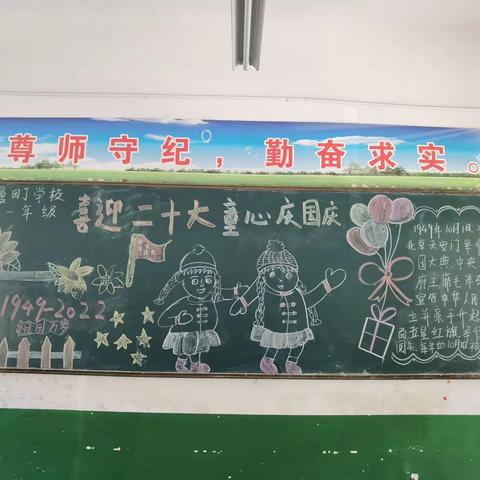 尊师守纪，勤奋求实。
田丁学校
一年级
喜迎二十大童心庆国庆
1949-2022
祖国万岁
1949年10月1日
北京天安门举
国大典，中央
府主席毛
宣告中华人
立并亲手升起
面五星红旗